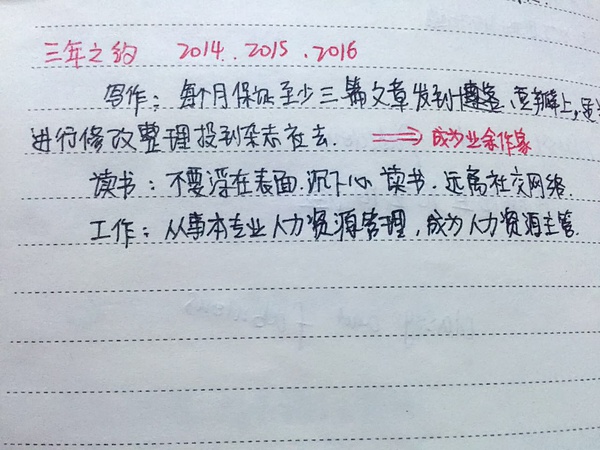 三年之约 2014.2015.2016
写作：每个月保证至少三篇文章发到博客、豆瓣上，
进行修改整理投到杂志社去. ⟹成为业余作家
读书：不要浮在表面.沉下心读书.远离社交网络.
工作：从事本专业人力资源管理，成为人力资源主管.